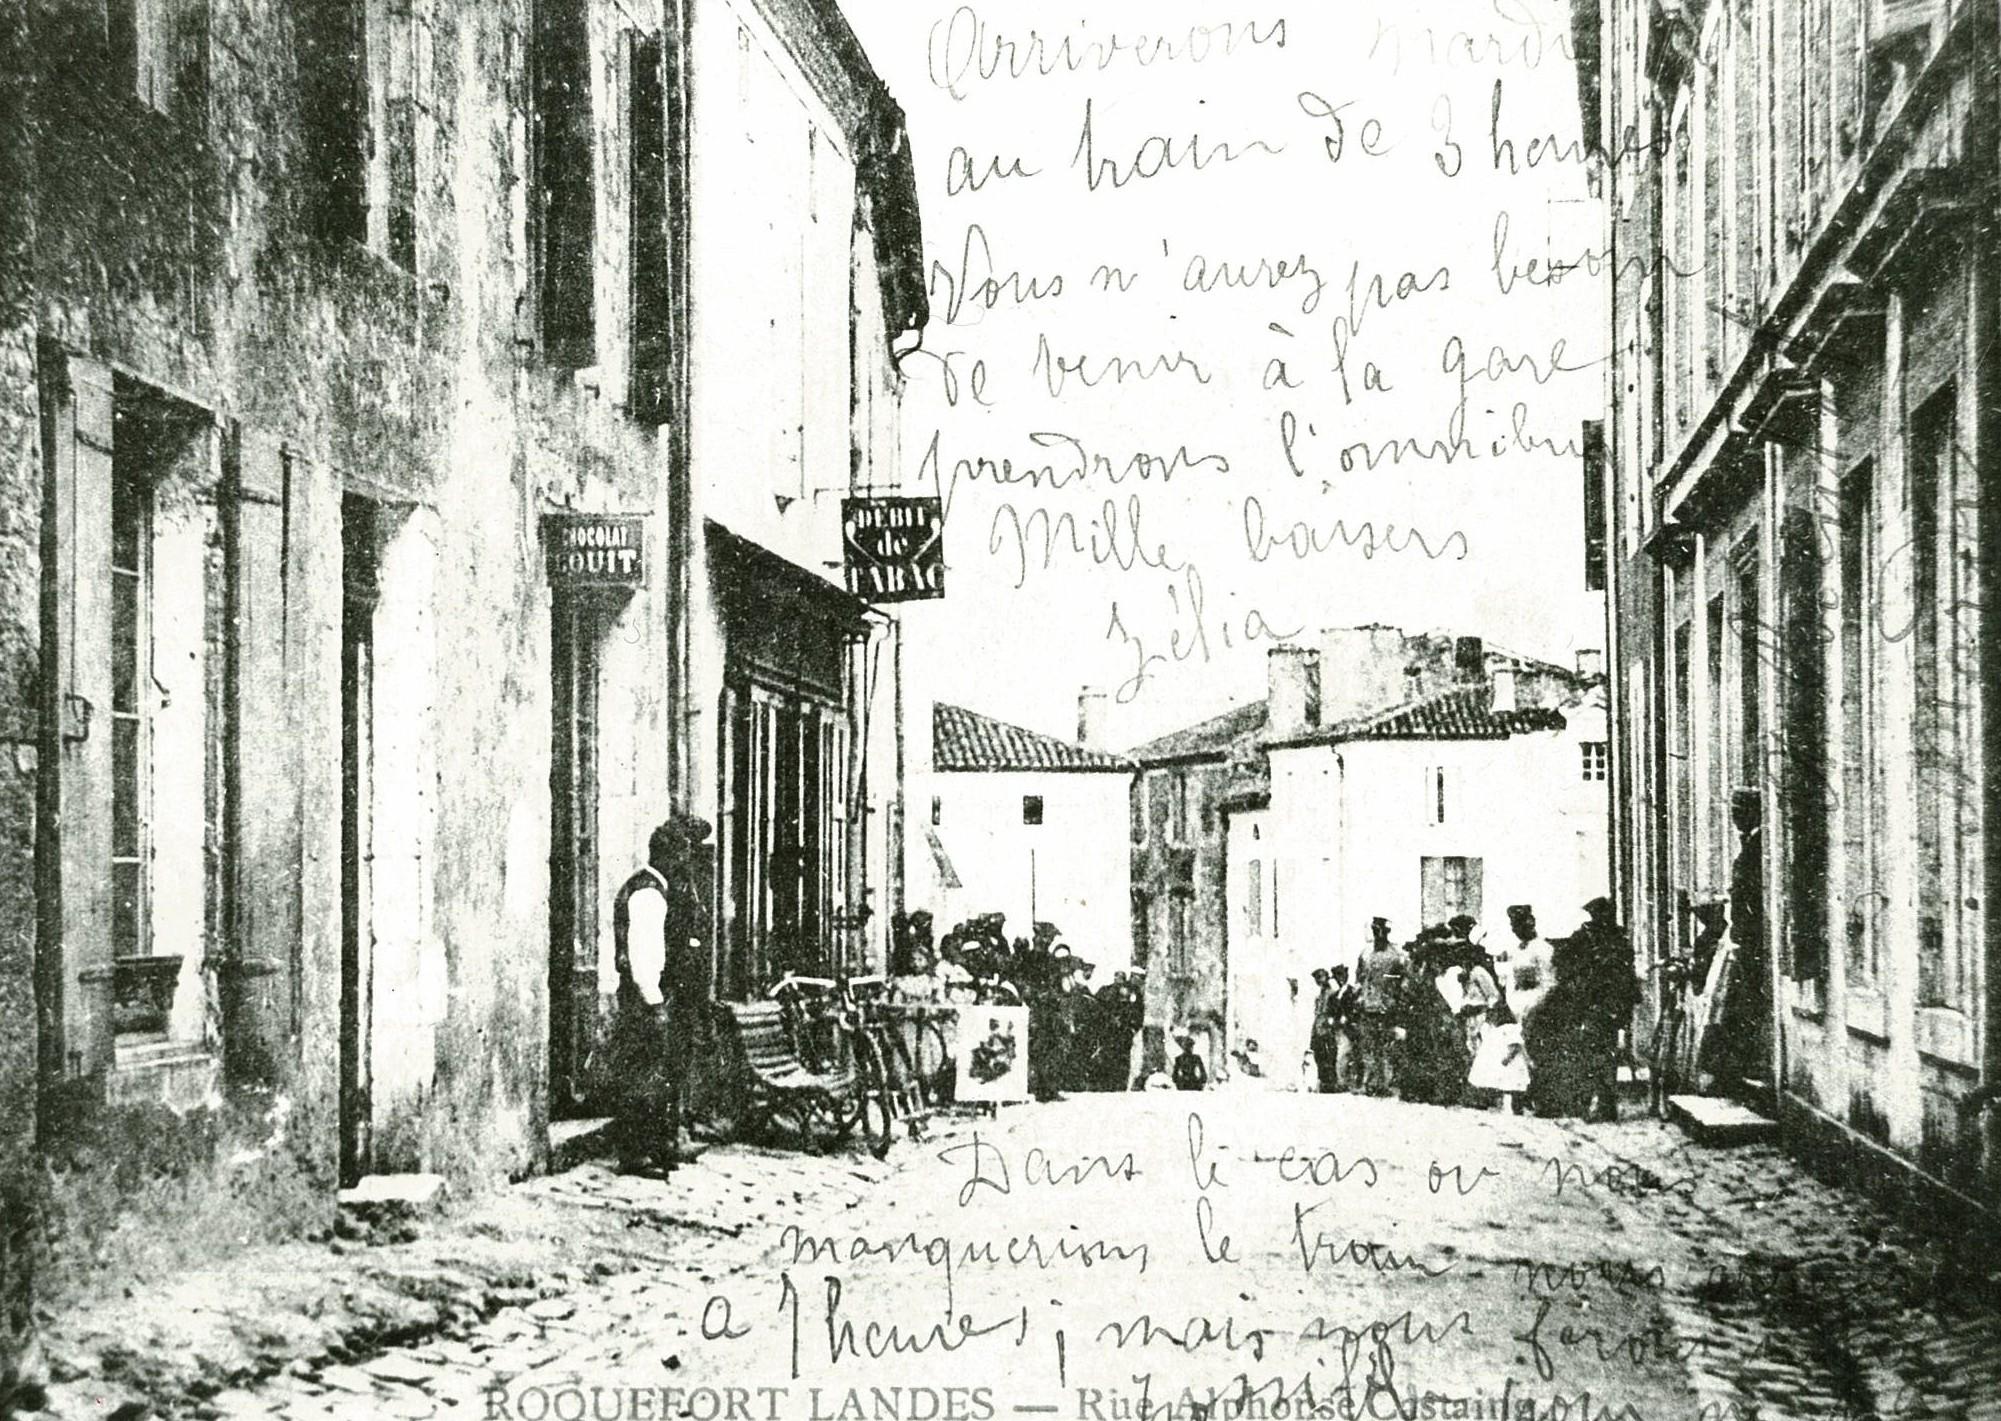 Arriverons mardi
au train de 3 heures
Vous n'aurez pas besoin
de venir à la gare
prendrons l'omnibus
Mille baisers
Zélia
CHOCOLAT
LOUIT
DÉBIT
de
TABAC
Dans le cas ou nous
manquerions le train nous
a 7 heures; mais nous ferons
ROQUEFORT LANDES — Rue Alphonse Castaing